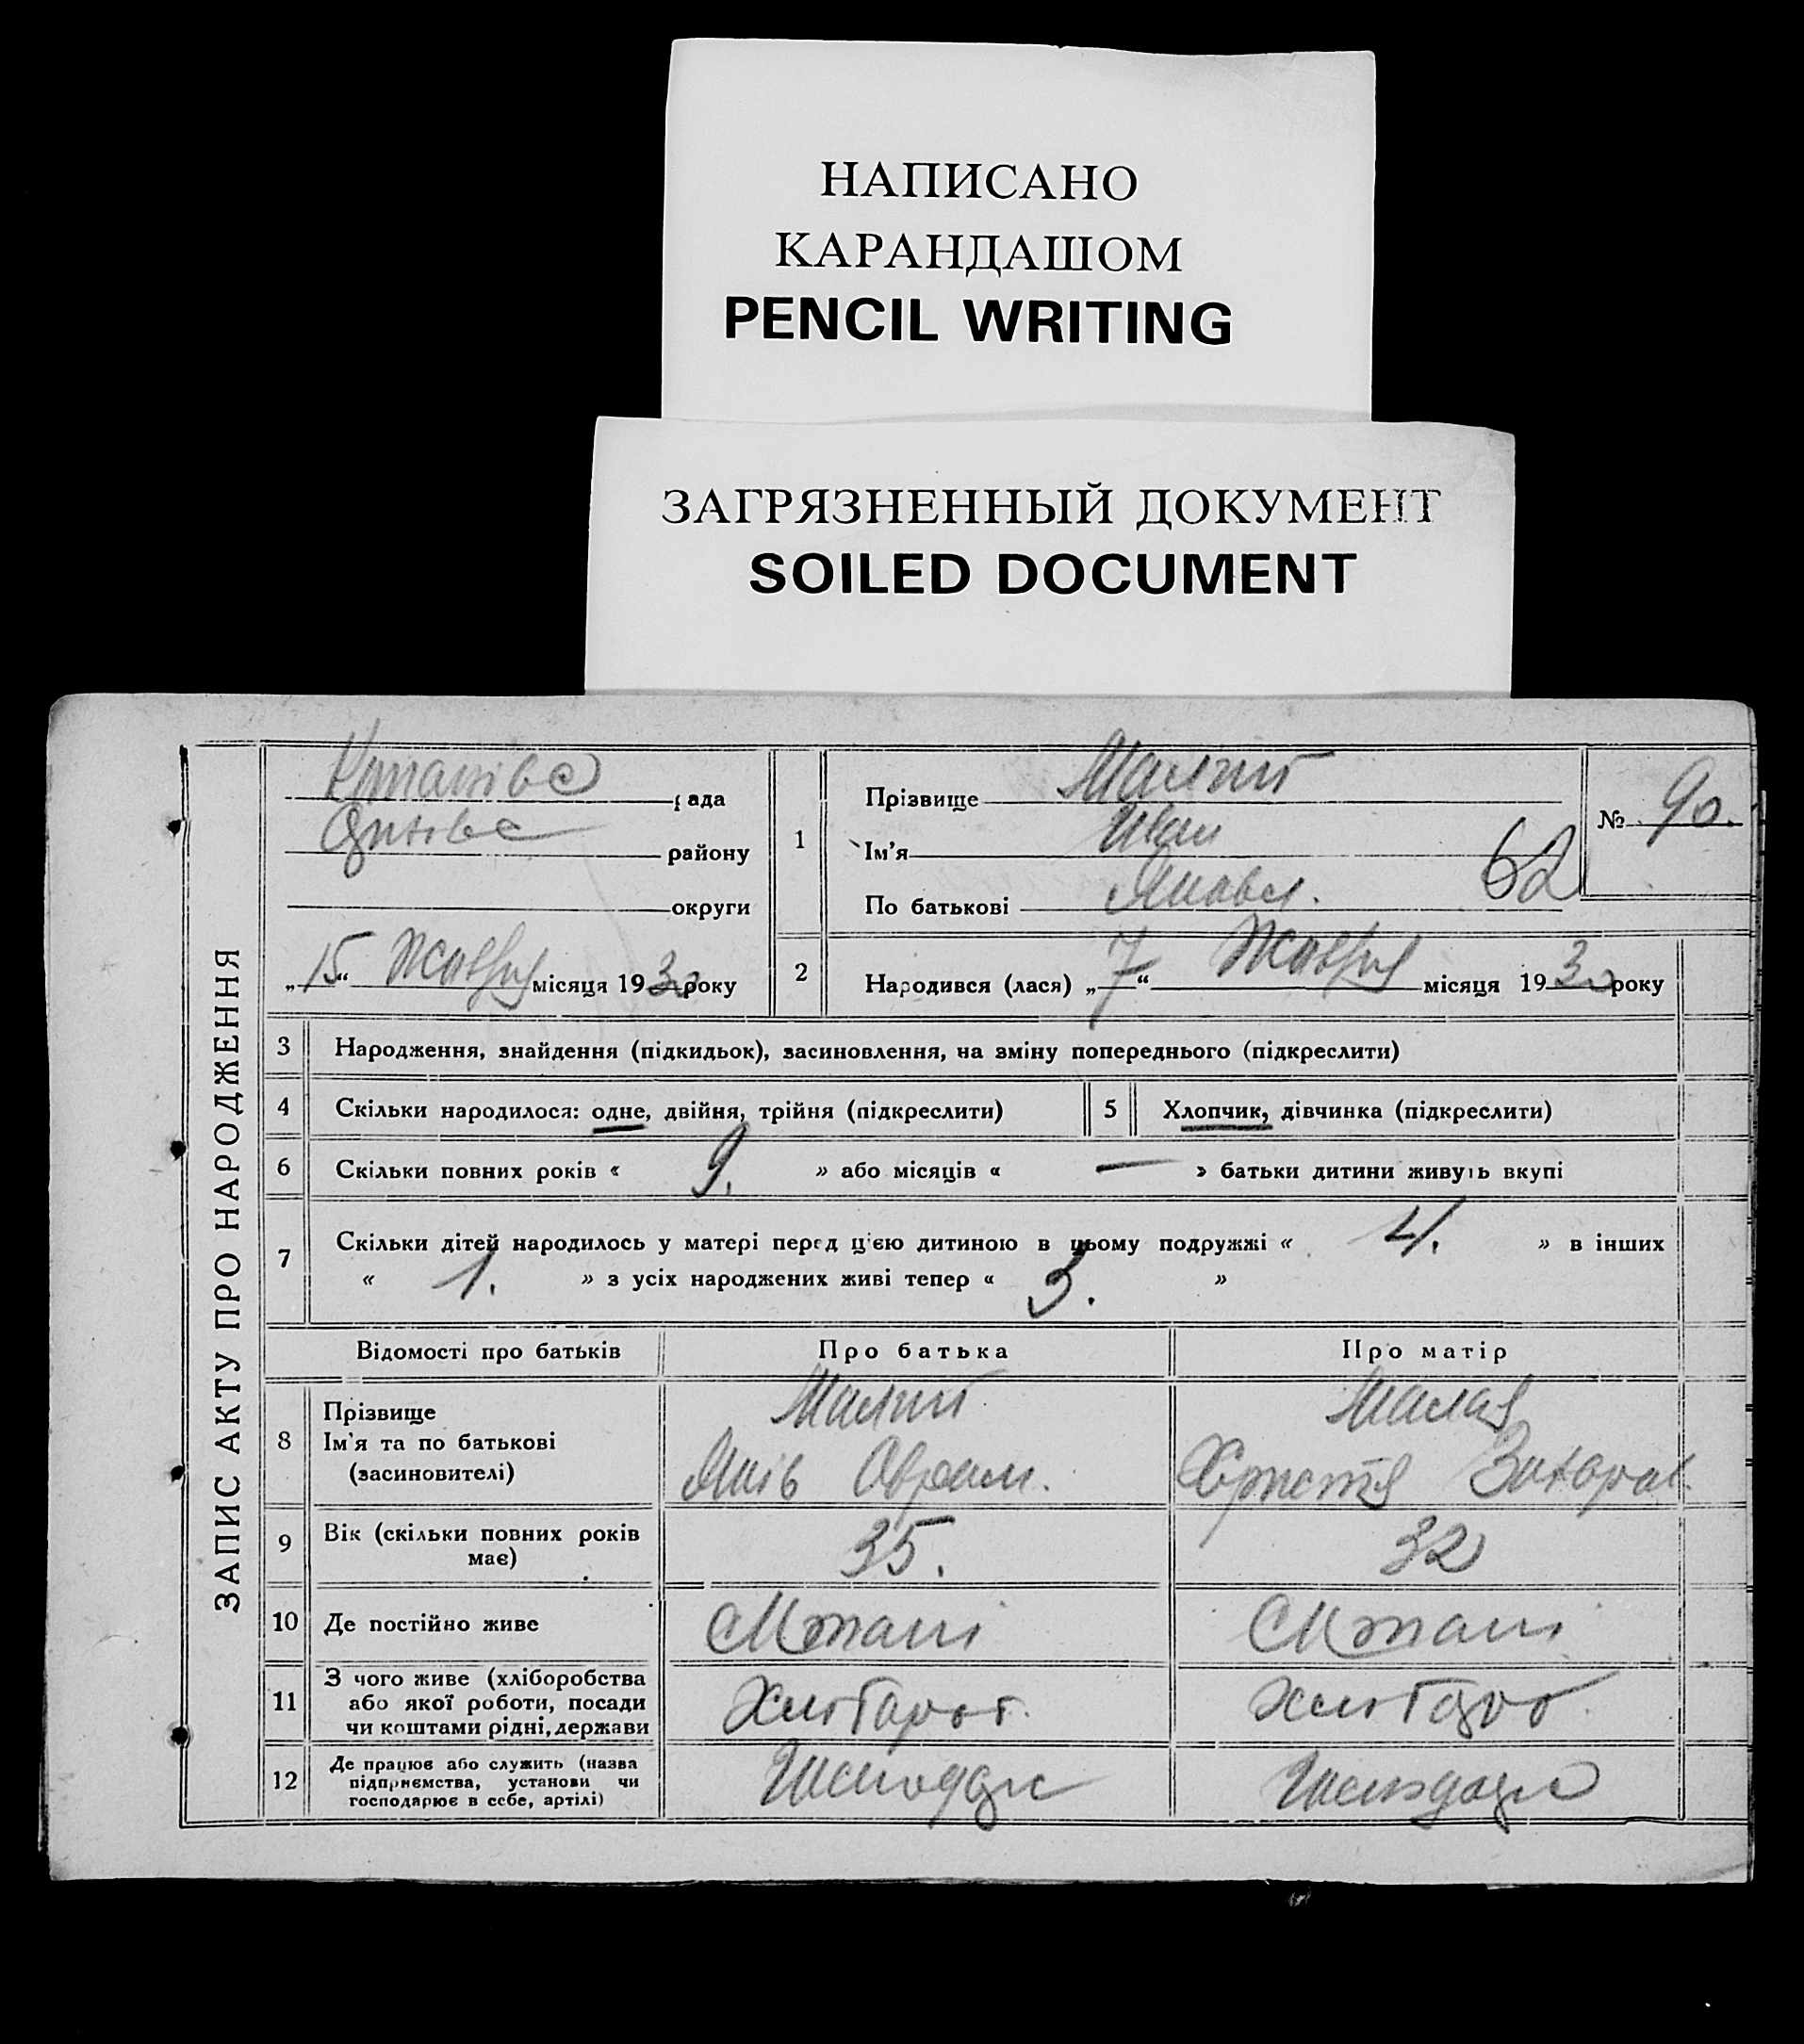 НАПИСАНО
КАРАНДАШОМ
PENCIL WRITING
ЗАГРЯЗНЕННЫЙ ДОКУМЕНТ
SOILED DOCUMENT
ЗАПИС АКТУ ПРО НАРОДЖЕННЯ
рада
району
округи
„15“ Жовтня місяця 1930 року
1 Прізвище Малий
Ім'я Иван
По батькові Яковл.
62
№ 90.
2 Народився (лася) „7“ Жовтня місяця 1930 року
3 Народження, знайдення (підкидьок), засиновлення, на зміну попереднього (підкреслити)
4 Скільки народилося: одне, двійня, трійня (підкреслити) 5 Хлопчик, дівчинка (підкреслити)
6 Скільки повних років « 9. » або місяців « — » батьки дитини живуть вкупі
7 Скільки дітей народилось у матері перед ц'єю дитиною в цьому подружжі « 4. » в інших
« 1. » з усіх народжених живі тепер « 3. »
Відомості про батьків Про батька Про матір
8 Прізвище Малий Малая
Ім'я та по батькові Яків Оврам. Христя Захаров.
(засиновителі)
9 Вік (скільки повних років має) 35. 32
10 Де постійно живе
11 З чого живе (хліборобства
або якої роботи, посади
чи коштами рідні, держави
12 Де працює або служить (назва
підприємства, установи чи
господарює в себе, артілі)